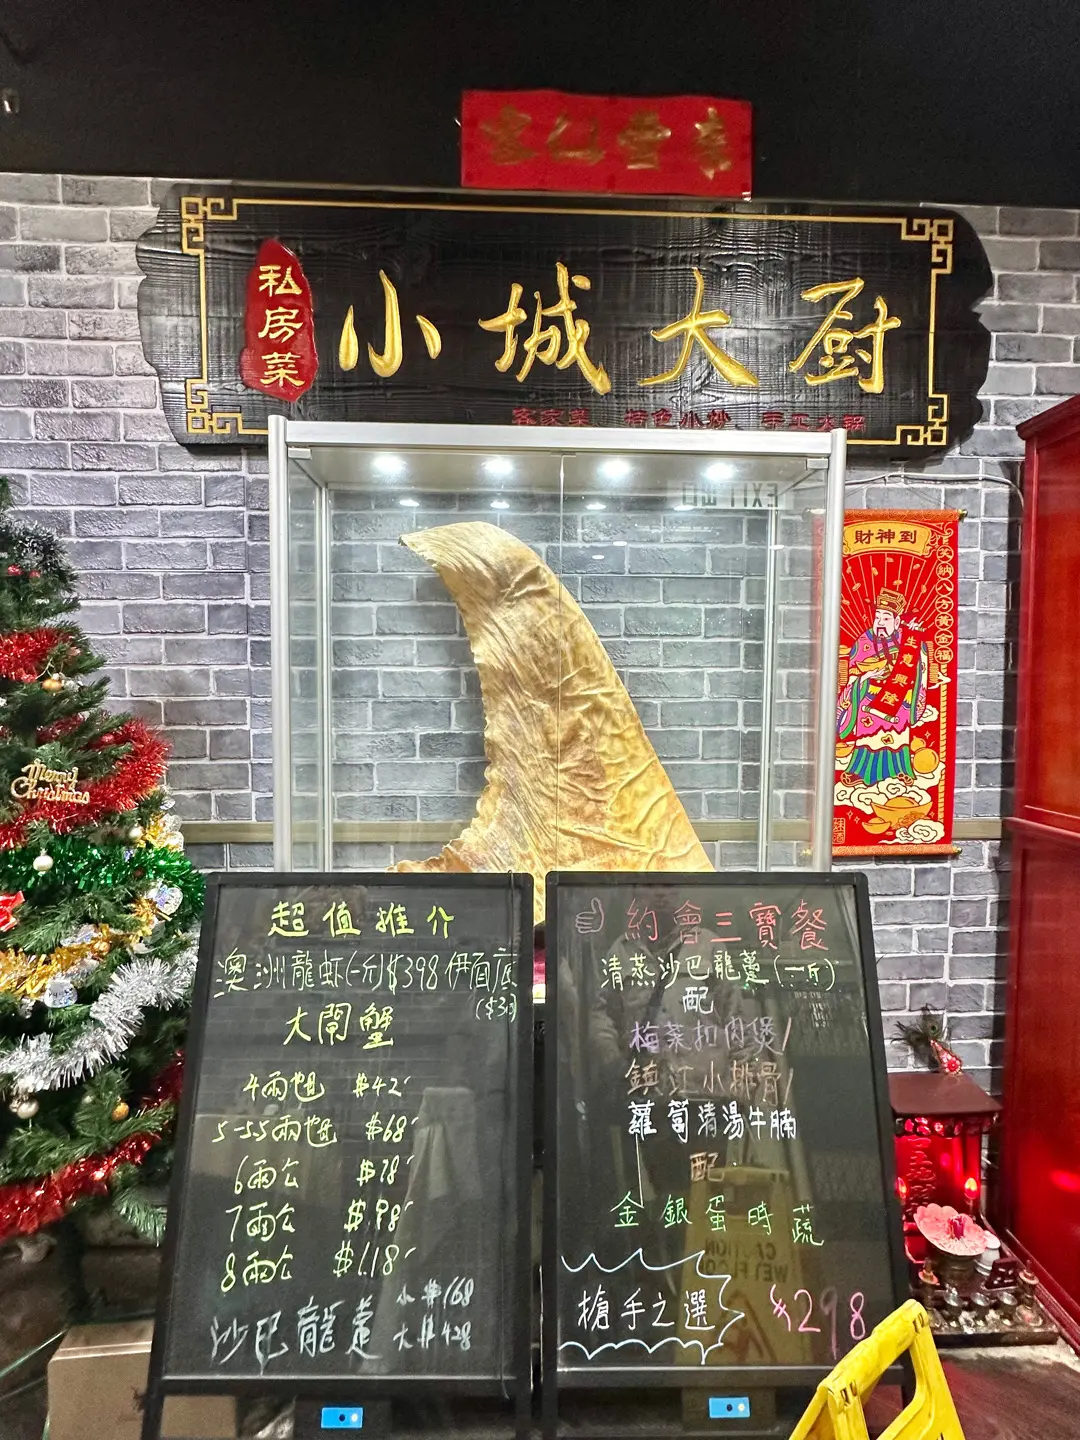 私房菜
小城大厨
客家菜 特色小炒 手工火锅
EXIT 出口
財神到
笑納八方黃金福
生意興隆
Merry
Christmas
超值推介
澳洲龍蝦(一斤)$398 伊面底
($30)
大閘蟹
4兩乸 $42
5-5.5兩乸 $68
6兩公 $78
7兩公 $98
8兩公 $118
沙巴龍躉 小$168
大$428
約會三寶餐
清蒸沙巴龍躉(一斤)
配
梅菜扣肉煲/
鎮江小排骨/
蘿蔔清湯牛腩
配
金銀蛋時蔬
槍手之選 $298
CAUTION
WET FLOOR